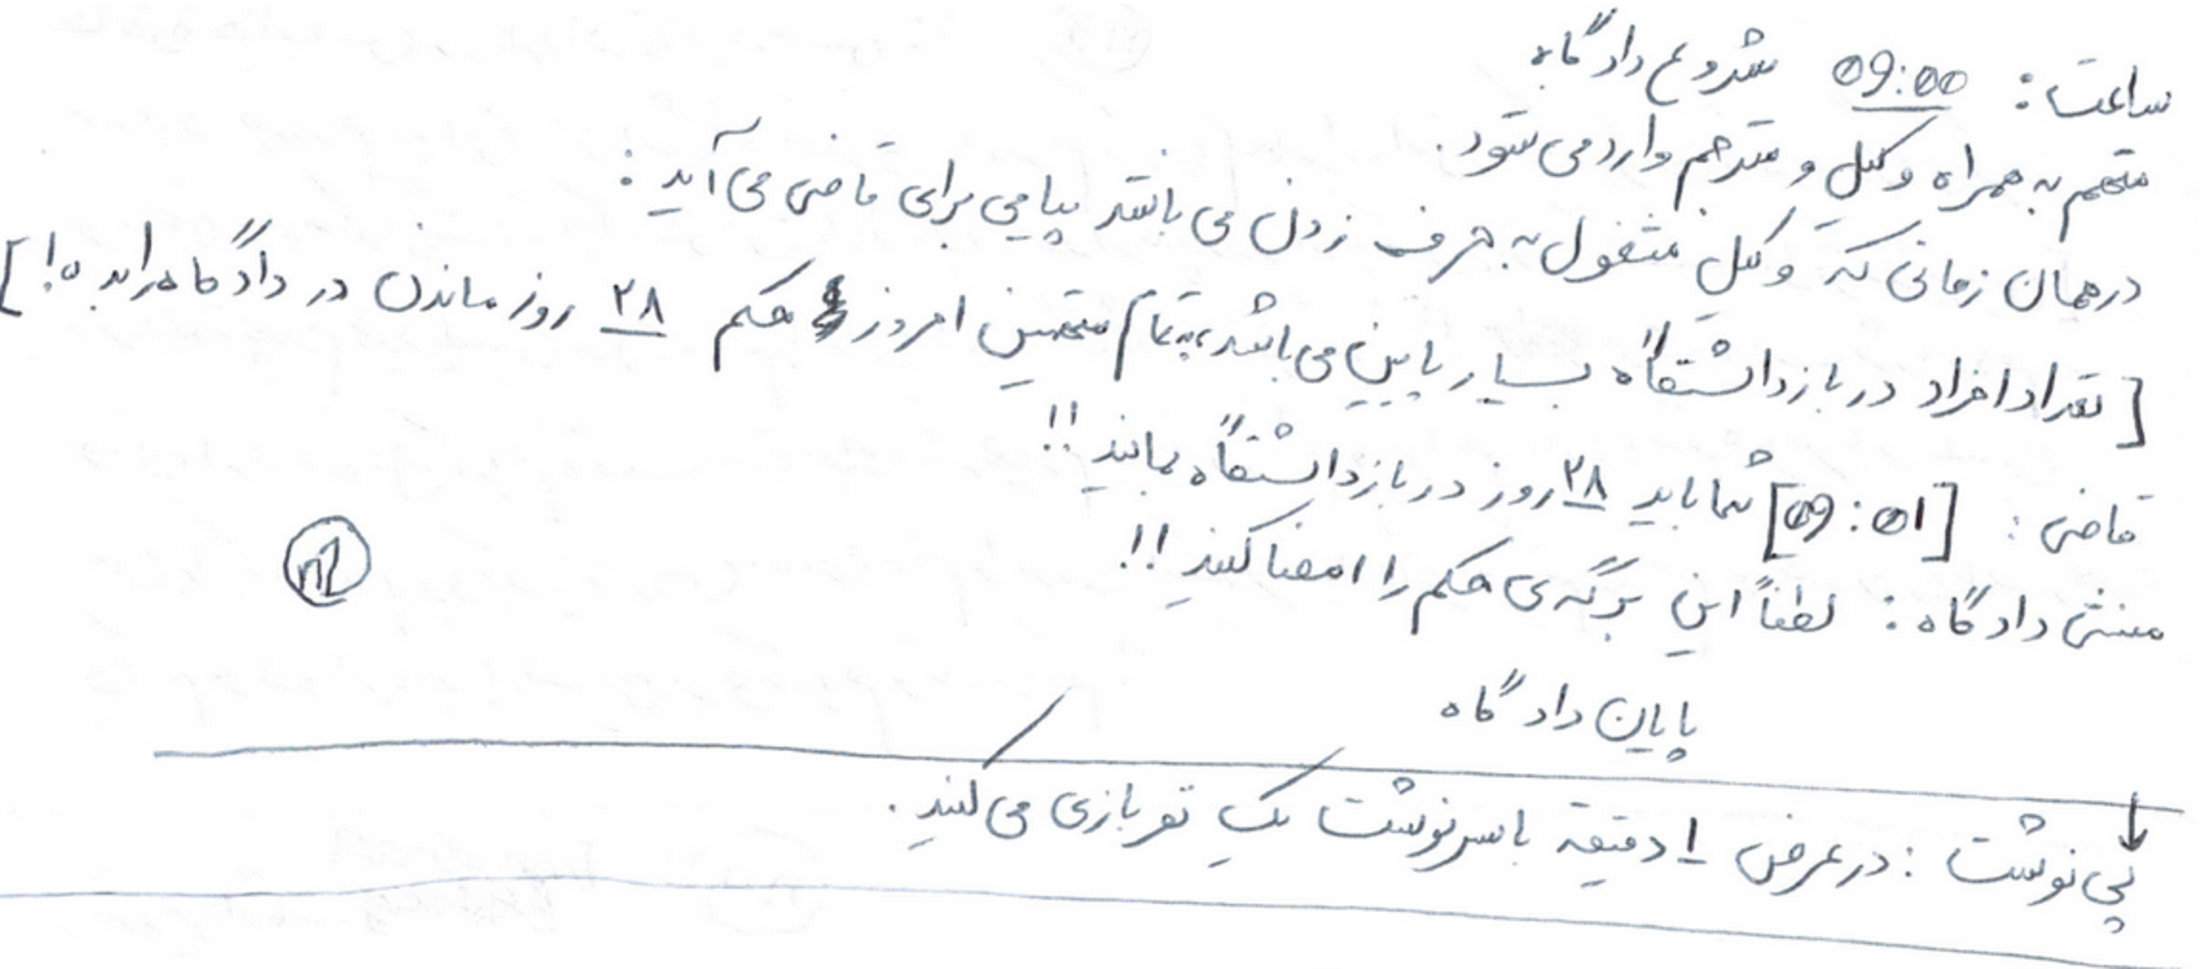 ساعت: 09:00 شروع دادگاه
متهم به همراه وکیل و مترجم وارد می شود.
در همان زمانی که وکیل مشغول به حرف زدن می باشد پیامی برای قاضی می آید:
[تعداد افراد در بازداشتگاه بسیار پایین می باشد، به تمام متهمین امروز حکم ۲۸ روز ماندن در دادگاه را بده!]
قاضی: [09:01] شما باید ۲۸ روز در بازداشتگاه بمانید!!
منشی دادگاه: لطفاً این برگه ی حکم را امضا کنید!!
پایان دادگاه
پی نوشت: در عرض ۱ دقیقه با سرنوشت یک نفر بازی می کنند.